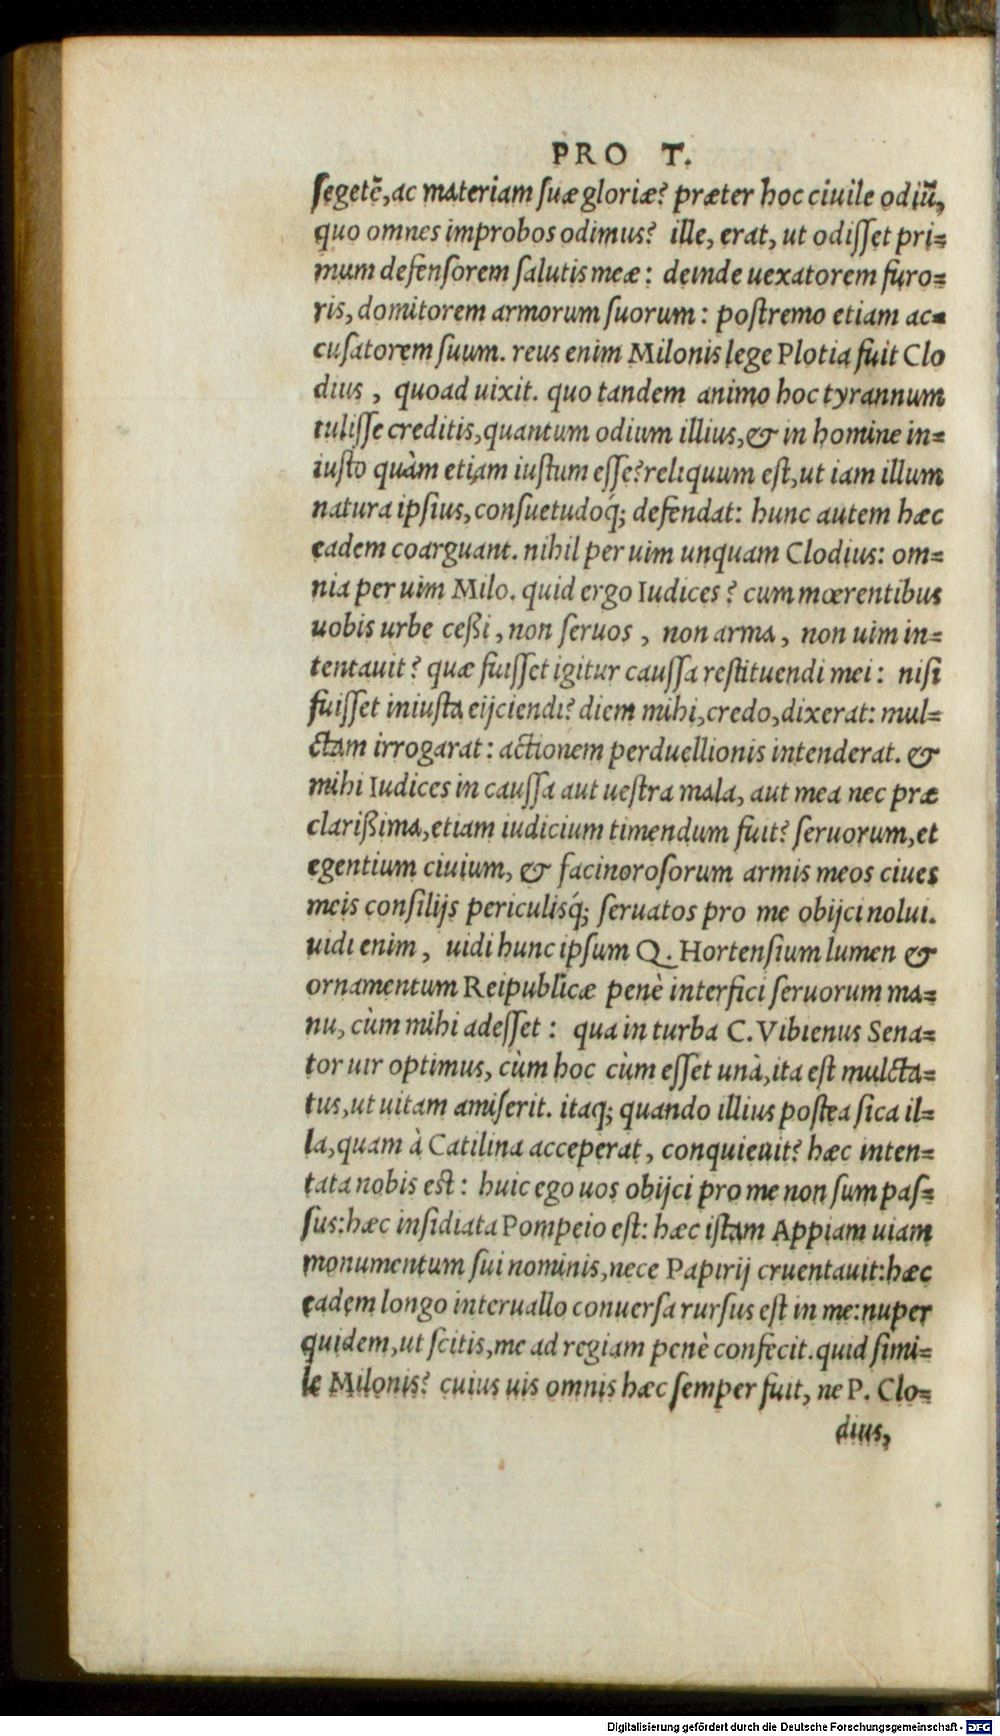 PRO T.
ſegetē,ac materiam ſuæ gloriæ? præter hoc ciuile odiū,
quo omnes improbos odimus? ille, erat, ut odiſſet pri=
mum defenſorem ſalutis meæ: deinde uexatorem furo=
ris, domitorem armorum ſuorum: poſtremo etiam ac=
cuſatorem ſuum. reus enim Milonis lege Plotia fuit Clo
dius, quoad uixit. quo tandem animo hoc tyrannum
tuliſſe creditis,quantum odium illius,& in homine in=
iuſto quàm etiam iuſtum eſſe?reliquum eſt,ut iam illum
natura ipſius, conſuetudoq́; defendat: hunc autem hæc
eadem coarguant. nihil per uim unquam Clodius: om=
nia per uim Milo. quid ergo Iudices? cum mœrentibus
uobis urbe ceßi, non ſeruos, non arma, non uim in=
tentauit? quæ fuiſſet igitur cauſſa reſtituendi mei: niſi
fuiſſet iniuſta eijciendi? diem mihi,credo,dixerat: mul=
ctam irrogarat: actionem perduellionis intenderat. &
mihi Iudices in cauſſa aut ueſtra mala, aut mea nec præ
clarißima,etiam iudicium timendum fuit? ſeruorum,et
egentium ciuium, & facinoroſorum armis meos ciues
meis conſilijs periculisq́; ſeruatos pro me obijci nolui.
uidi enim, uidi hunc ipſum Q. Hortenſium lumen &
ornamentum Reipublicæ penè interfici ſeruorum ma=
nu, cùm mihi adeſſet: qua in turba C. Vibienus Sena=
tor uir optimus, cùm hoc cùm eſſet unà,ita eſt mulcta=
tus,ut uitam amiſerit. itaq; quando illius poſtea ſica il=
la,quam à Catilina acceperat, conquieuit? hæc inten=
tata nobis est: huic ego uos obijci pro me non ſum paſ=
ſus:hæc inſidiata Pompeio eſt: hæc iſtam Appiam uiam
monumentum ſui nominis,nece Papirij cruentauit:hæc
eadem longo interuallo conuerſa rurſus eſt in me:nuper
quidem,ut ſcitis,me ad regiam penè confecit.quid ſimi=
le Milonis? cuius uis omnis hæc ſemper fuit, ne P. Clo=
dius,
Digitalisierung gefördert durch die Deutsche Forschungsgemeinschaft - DFG